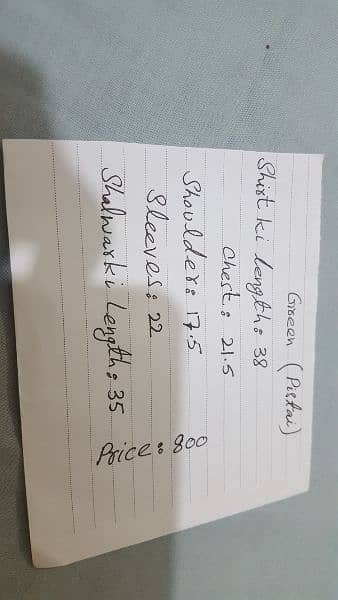 Green (Pistai)
Shirt ki length: 38
Chest: 21.5
Shoulder: 17.5
Sleeves: 22
Shalwar ki Length: 35
Price: 800